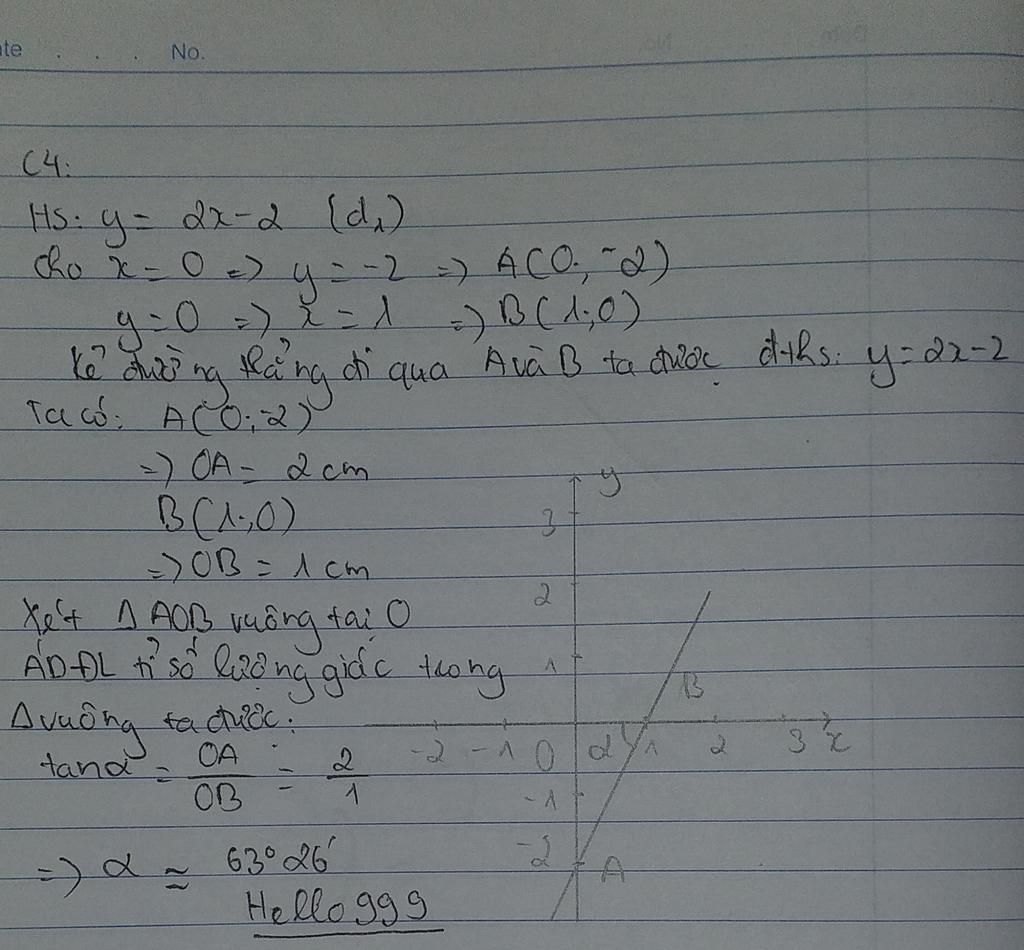 ate . . . . No.
C4:
HS: y = 2x-2 (d1)
Cho x = 0 => y = -2 => A(0; -2)
y=0 => x = 1 => B(1;0)
Kẻ đường thẳng đi qua A và B ta được đths: y=2x-2
Ta có: A(0;-2)
=> OA = 2cm
B(1;0)
=> OB = 1cm
Xét Δ AOB vuông tại O
ÁD ĐL tỉ số lượng giác trong
Δ vuông ta được:
tanα = OA/OB = 2/1
=> α ≈ 63°26'
Hello999
y
3
2
1
B
-2 -1 0 α 1 2 3 x
-1
-2 A